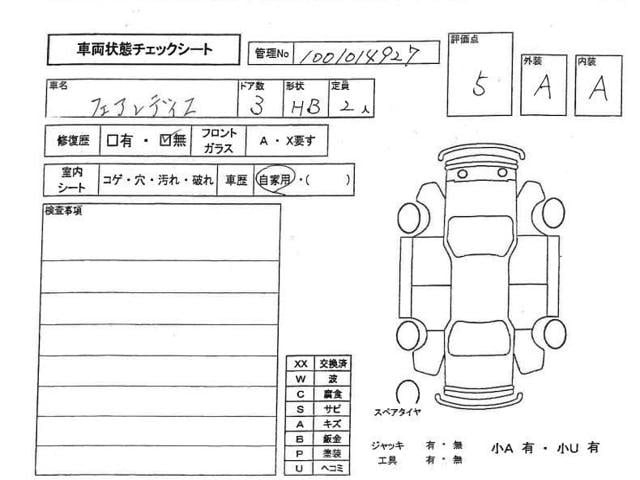 車両状態チェックシート
管理No 1001014927
評価点
5
外装
A
内装
A
車名
フェアレディZ
ドア数
3
形状
HB
定員
2人
修復歴
□有・☑無
フロント
ガラス
A・X要す
室内
シート
コゲ・穴・汚れ・破れ
車歴
自家用・( )
検査事項
XX 交換済
W 波
C 腐食
S サビ
A キズ
B 鈑金
P 塗装
U ヘコミ
スペアタイヤ
ジャッキ 有・無
工具 有・無
小A 有・小U 有